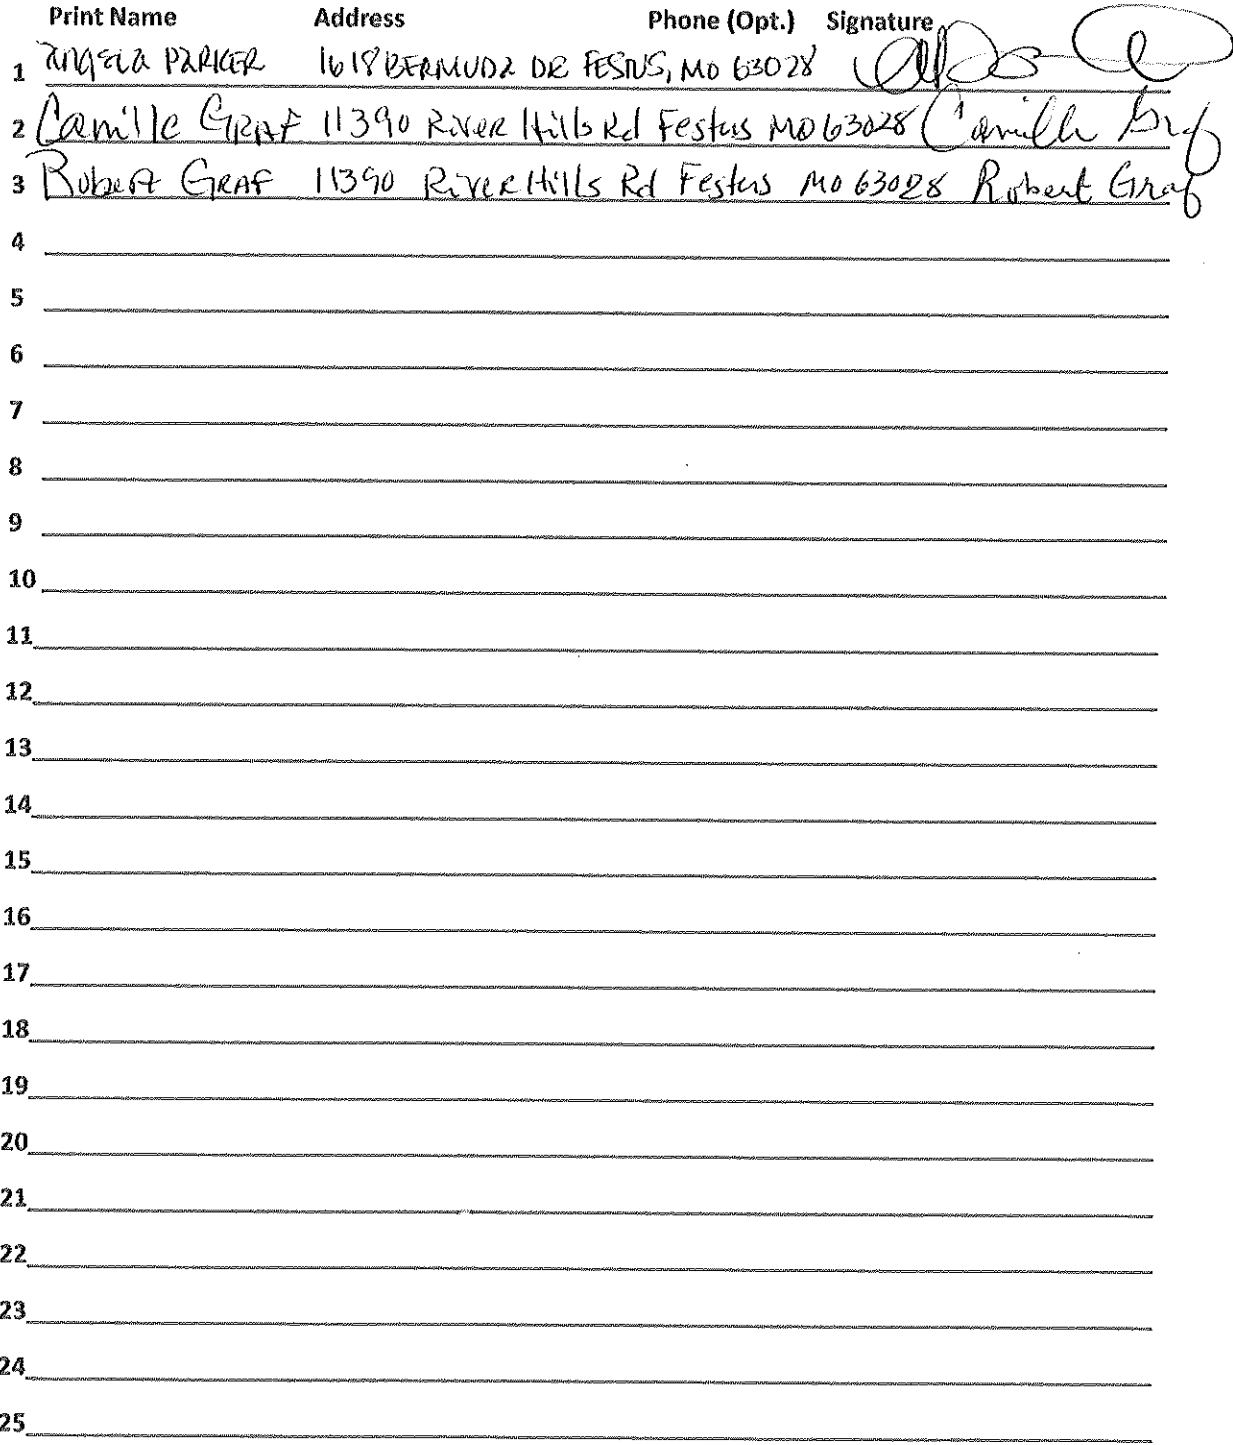 Print Name Address Phone (Opt.) Signature
1 Angela PARKER 1618 BERMUDA DR FESTUS, MO 63028
2 Camille GRAF 11390 River Hills Rd Festus MO 63028 Camille Graf
3 Robert GRAF 11390 River Hills Rd Festus MO 63028 Robert Graf
4
5
6
7
8
9
10
11
12
13
14
15
16
17
18
19
20
21
22
23
24
25